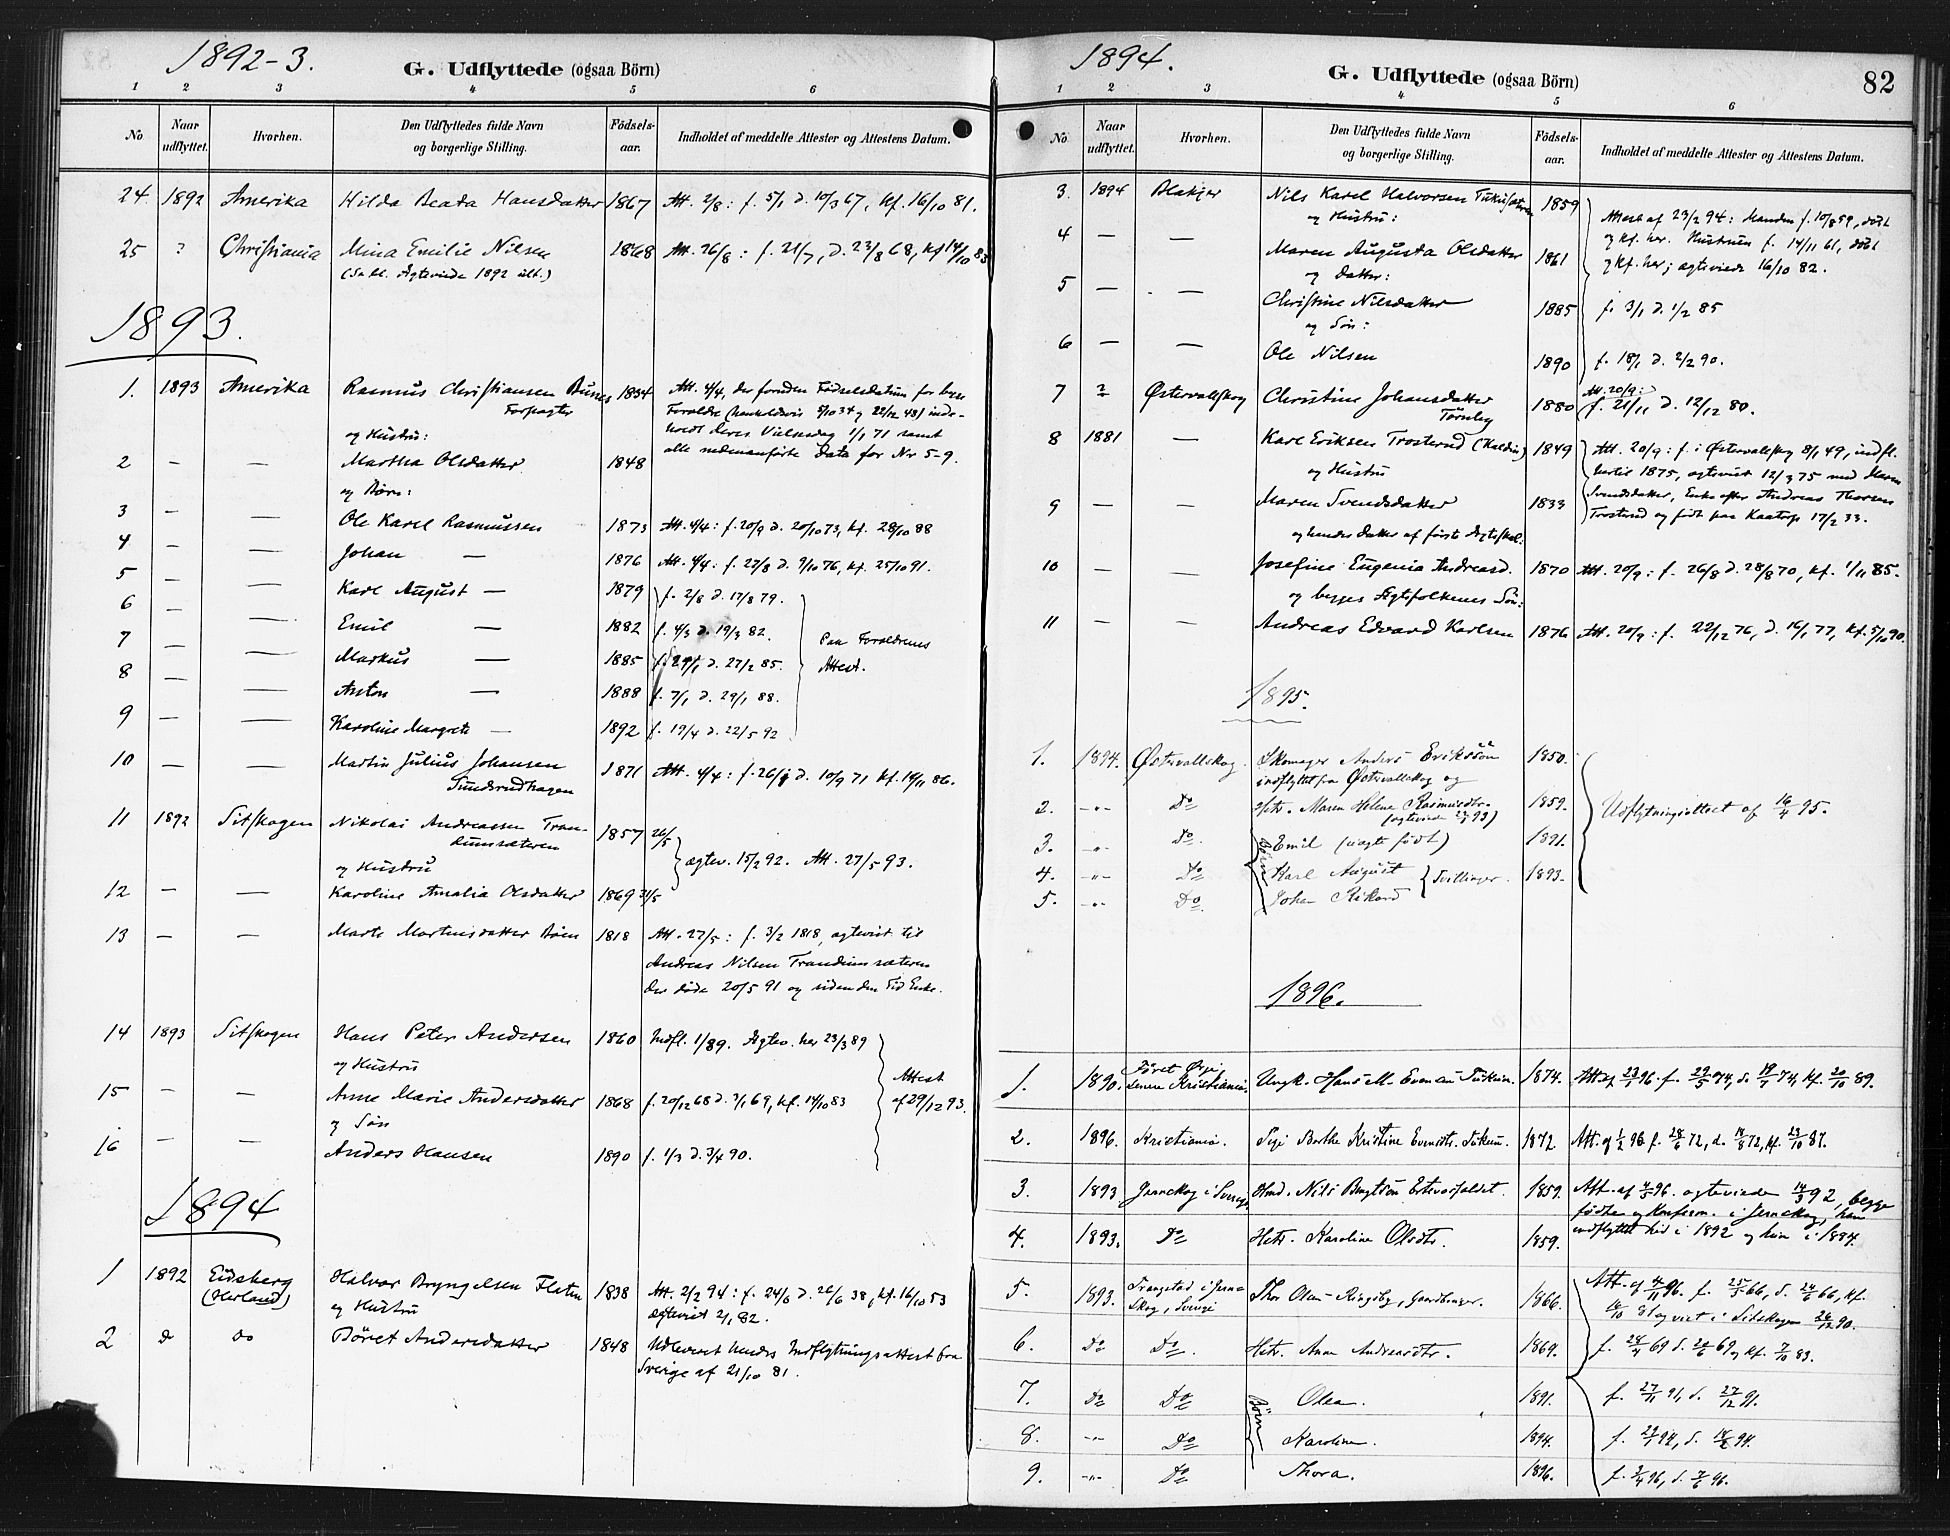 1892-3.
G. Udflyttede (ogsaa Börn)
1 2 3 4 5 6
No Naar udflyttet. Hvorhen. Den Udflyttedes fulde Navn og borgerlige Stilling. Födsels-aar. Indholdet af meddelte Attester og Attestens Datum.
24 1892 Amerika Hilda Beata Hansdatter 1867 Att. 2/8: f. 5/1 d. 10/3 67, kf. 16/10 81.
25 ? Christiania Mina Emilie Nilsen 1868 Att. 26/8: f. 21/7, d. 23/8 68, kf 14/10 83
1893.
1. 1893 Amerika Rasmus Christiansen 1834 Att. 4/4, der foruden Fødselsdatum for
Forpagter
og Hustru: deres Vielsesdag 1/1 71 samt
alle nedenanførte Data for Nr 5-9.
2 — — Martha Olsdatter 1848
og Børn:
3 — — Ole Karel Rasmussen 1873 Att. 4/4: f. 20/9 d. 20/10 73, kf. 28/10 88
4 — — Johan — 1876 Att. 4/4: f. 27/8 d. 9/10 76, kf. 25/10 91.
5 — — Karl August — 1879 f. 2/8 d. 17/8 79.
6 — — Emil — 1882 f. 4/3 d. 19/3 82. Paa Forældrenes
7 — — Markus — 1885 d. 27/2 85. Attest.
8 — — Anton — 1888 f. 7/1 d. 29/1 88.
9 — — Karoline Margrete — 1892 f. 19/4 d. 22/5 92
10 — — Martin Julius Johansen 1871 Att. 4/4: d. 10/9 71 kf. 14/11 86.
Sundsrudhagen
11 1892 Sitskogen Nikolai Andreassen Tran- 1857 26/5
dumsæteren ægtev. 15/2 92. Att. 27/5 93.
og Hustru
12 — — Karoline Amalia Olsdatter 1869 31/5
13 — — Marte Martinsdatter 1818 Att. 27/5: f. 3/2 1818, ægteviet til
Andreas Nilsen Trandumsæteren
der døde 20/5 91 og siden den Tid Enke.
14 1893 Sitskogen Hans Peter Andersen 1860 Indfl. 1/89. Ægtev. her 23/3 89
og Hustru Attest
15 — — Anne Marie Andersdatter 1868 f. 20/12 68 d. 3/1 69, kf. 14/10 83 af 29/12 93.
og Søn
16 — — Anders Hansen 1890 f. 1/3 d. 3/4 90.
1894
1 1892 Eidsberg Halvor Bryngelsen Flaten 1838 Att. 2/2 94: f. 24/6 d. 26/6 38, kf. 16/10 53
(Herland) og Hustru ægteviet 2/1 82.
2 do do Børet Andersdatter 1848 Udleveret hendes Indflytningsattest fra
Sverige af 21/10 81.
1894.
G. Udflyttede (ogsaa Börn) 82
1 2 3 4 5 6
No. Naar udflyttet. Hvorhen. Den Udflyttedes fulde Navn og borgerlige Stilling. Födsels-aar. Indholdet af meddelte Attester og Attestens Datum.
3. 1894 Blakjer Nils Karel Halvorsen 1859 Attest af 23/2 94: Manden f. 10/8 59, døbt
og Hustru: og kf. her. Hustruen f. 14/11 61, døbt
4 — — Maren Augusta Olsdatter 1861 og kf. her; ægteviede 16/10 82.
og Datter:
5 — — Christine Nilsdatter 1885 f. 3/1 d. 1/2 85
og Søn:
6 — — Ole Nilsen 1890 f. 18/1 d. 2/2 90.
7 ? Østervallskog Christine Johansdatter 1880 Att. 20/9: f. 21/11 d. 12/12 80.
Tørneby
8 1881 — Karl Eriksen Trosterud 1849 Att. 20/9: f. i Østervallskog 8/1 49, indfl.
og Hustru hertil 1875, ægteviet 12/3 75 med Maren
9 — — Maren Svendsdatter 1833 Svendsdatter, Enke efter Andreas Thoresen
Trosterud og født paa 17/2 33.
og hendes Datter af første Ægteskab:
10 — — Josefine Eugenia Andreasd. 1870 Att. 20/9: f. 26/8 d. 28/8 70, kf. 1/11 85.
og begges Ægtefolkenes Søn:
11 — — Andreas Edvard Karlsen 1876 Att. 20/9: f. 22/12 76, d. 16/1 77, kf. 5/10 90.
1895.
1. 1894. Østervallskog. Skomager Anders Eriksson 1850.
indflyttet fra Østervallskog og
2. -"- Do Hstr. Maren Helene Rasmusdtr. 1859. Udflytningsattest af 16/4 95.
3. -"- Do. Børn Emil (uægte født) 1891.
4. -"- Do Karl August Tvillinger. 1893.
5. -"- Do. Johan Rikard
1896.
1. 1890. Først Ørje, Ungk. Hans M. Evensen 1874. Att. af 23/1 96. f. 29/5 74, d. 19/7 74, kf. 20/10 89.
senere Kristiania.
2. 1896. Kristiania. Pige Berthe Kristine Evensdtr. 1872. Att. af 1/2 96. f. 28/6 72, d. 18/8 72, kf. 23/10 87.
3. 1893 Jernskog i Sverige Nils Bengtson 1859. Att. af 4/5 96. ægteviede 14/3 92, begge
fødte og Konfirm. i Jernskog, han
4. 1893. Do Hstr. Karoline Olsdtr. 1859. indflyttet hid i 1892 og hun i 1884.
5. 1893. i Jern- Thor Olsen Ringsby, Gaardbruger. 1866. Att. af 4/11 96. f. 25/5 66, d. 24/6 66, kf.
skog, Sverige 16/10 81 og viet i Sitskogen 26/12 90.
6. Do Do. Hstr. Anne Andreasdtr. 1869. f. 28/4 69 d. 26/6 69 og kf. 7/10 83.
7. Do Do Børn Olea. 1891. f. 27/11 91, d. 27/12 91.
8. -"- Do Karoline. 1894. f. 23/1 94, d. 18/2 94.
9. -"- Do Thora. 1896. f. 3/4 96, d. 7/6 96.